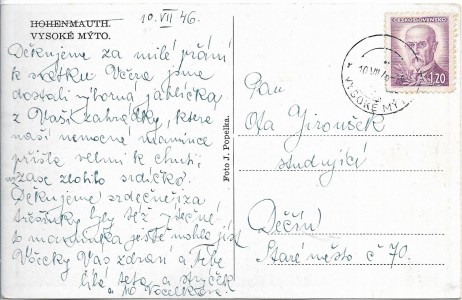 HOHENMAUTH.
VYSOKÉ MÝTO.
10. VII 46.
Děkujeme za milé přání
k svátku Včera jsme
dostali výborná jablíčka
z Vaší zahrádky, které
naší nemocné mamince
přišla velmi k chuti,
zase zlotilo srdíčko.
Děkujeme srdečně i za
byly též výtečné
to maminka ještě mohla jíst
Všecky Vás zdraví a Tebe
líbá teta a strýček
Foto J. Popelka.
ČESKOSLOVENSKO
1.20
VYSOKÉ MÝTO
Pan
Ota Jiroušek
studující
Děčín
Staré město č 70.